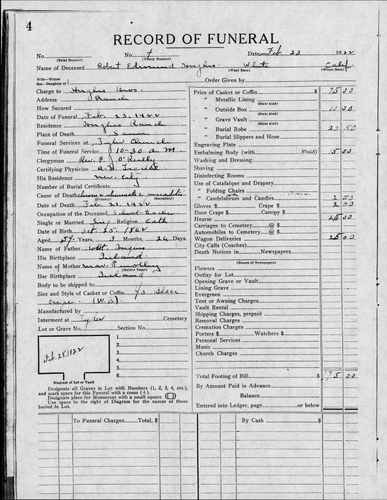 4
RECORD OF FUNERAL
No.
(Total Number)
No. 7
(Yearly Number)
Date Feb 23 1922
Name of Deceased Robert Edmund White Calif
(What Race) (Where From)
Charge to Bros. Order Given by
Address Ranch
How Secured
Date of Funeral Feb. 23, 1922
Residence Ranch
Place of Death Same
Funeral Services at Tyler Church
Time of Service 10-30 a.m
Clergyman Rev. P. O'Reilly
Certifying Physician
His Residence
Number of Burial Certificate
Cause of Death
Date of Death Feb. 21, 1922
Occupation of the Deceased
Single or Married Religion Cath
Date of Birth Oct 25 1862
Aged 59 Years, 3 Months, 26 Days
Name of Father
His Birthplace Ireland
Name of Mother
(Maiden Name)
Her Birthplace Ireland
Body to be shipped to
Size and Style of Casket or Coffin 6/3
Manufactured by
Interment at Tyler Cemetery
Lot or Grave No. Section No.
Feb 28, 1922
1.
2.
3.
4.
5.
6.
Diagram of Lot or Vault
Designate all Graves in Lot with Numbers (1, 2, 3, 4, etc.), and mark space for this Funeral with a cross (+).
Designate place for Monument with a small square
Use space to the right of Diagram for the names of those buried in Lot.
Price of Casket or Coffin 75 00
(State Kind)
" Metallic Lining
" Outside Box 10 00
(State Kind)
" Grave Vault
(State Kind)
" Burial Robe
(State Kind)
" Burial Slippers and Hose
Engraving Plate
Embalming Body (with Fluid) 15 00
Washing and Dressing
Shaving
Disinfecting Rooms
Use of Catafalque and Drapery
" Folding Chairs
" Candelabrum and Candles 2 50
Gloves $ Crape $
Door Crape $ Canopy $
Hearse 25 00
Carriages to Cemetery @
Automobiles to Cemetery @
Wagon Deliveries 25 00
City Calls (Coaches)
Death Notices in Newspapers
(Names of Newspapers)
Flowers
Outlay for Lot
Opening Grave or Vault
Lining Grave
Evergreen
Tent or Awning Charges
Vault Rental
Shipping Charges, prepaid
Removal Charges
Cremation Charges
Porters $ Watchers $
Personal Services
Music
Church Charges
Total Footing of Bill 00
By Amount Paid in Advance
Balance
Entered into Ledger, page or below
To Funeral Charges, Total $ By Cash $